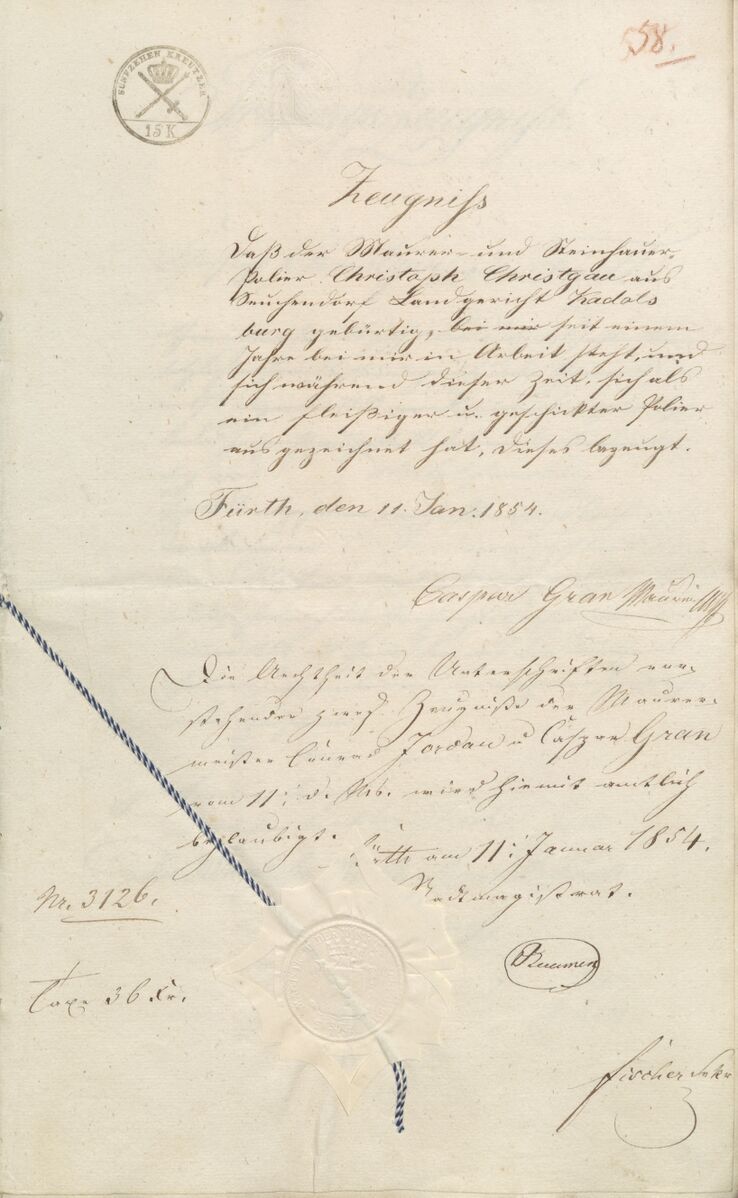 58.
FUNFZEHEN KREUTZER
15 K
Zeugniss
Daß der Maurer- und Steinhauer-
Polier Christoph Christgau aus
Seuchendorf Landgericht Kadolz
burg gebürtig, bei mir seit einem
Jahre bei mir in Arbeit steht, und
sich während dieser Zeit, sich als
ein fleißiger u. geschickter Polier
ausgezeichnet hat, dieses bezeugt.
Fürth, den 11. Jan. 1854.
Caspar Gran Maurermstr
Die Aechtheit der Unterschriften vor-
stehender zwei Zeugniße der Maurer-
meister Conrad Jordan u Caspar Gran
vom 11: d. Mts. wird hiemit amtlich
beglaubigt.
Fürth am 11: Januar 1854.
Stadtmagistrat.
Nr. 3126.
Taxe 36 Kr.
Fischer Sekr